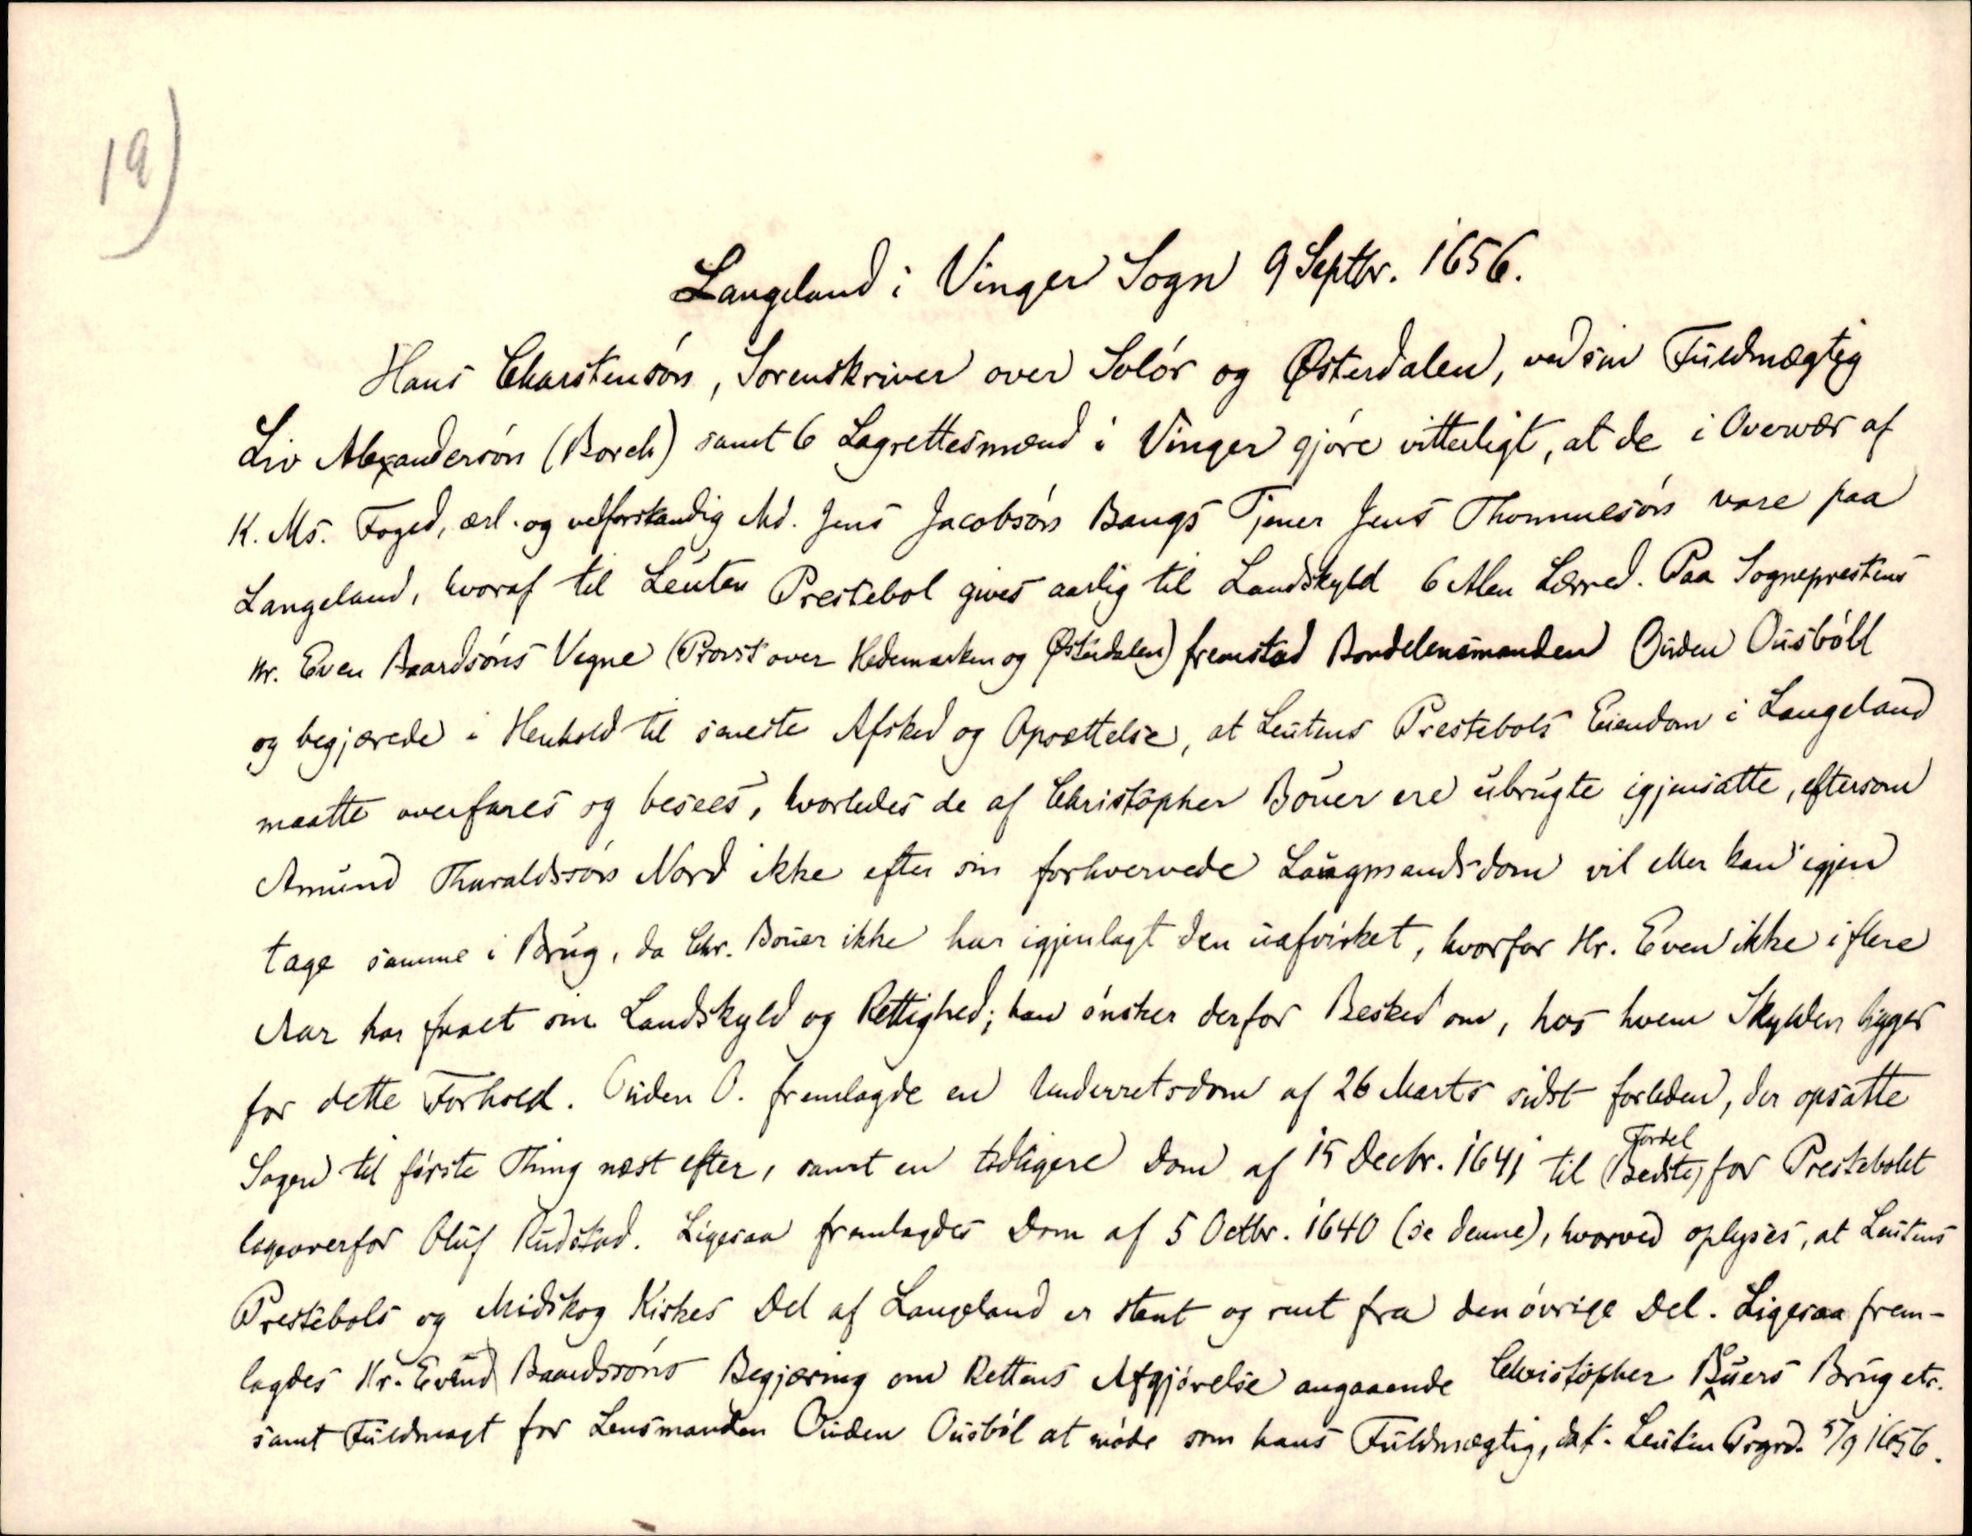 19)
Langeland i Vinger Sogn 9 Septbr. 1656.
Hans Charstensón, Sorenskriver over Solór og Østerdalen, ved sin Fuldmægtig
Liv Alexandersón (Borch) samt 6 Lagrettesmænd i Vinger gjóre vitterligt, at de i Overvær af
K. Ms. Foged, ærl. og velforstandig Md. Jens Jacobsón Bangs Tjener Jens Thommesón vare paa
Langeland, hvoraf til Leuten Prestebol gives aarlig til Landskyld 6 Alen Lærred. Paa Sogneprestens
Hr. Even Baardsóns Vegne (Provst over Hedemarken og Østerdalen) fremstod Bondelensmanden Ouden Ousbóll
og begjærede i Henhold til seneste Afsked og Opsættelse, at Leutens Prestebols Eiendom i Langeland
maatte overfares og besees, hvorledes de af Christópher Bóuer ere ubrugte igjensatte, eftersom
Amund Tharaldssón Nord ikke efter sin forhvervede Laugmandsdom vil eller kan igjen
tage samme i Brug, da Chr. Bouer ikke har igjenlagt den uafvirket, hvorfor Hr. Even ikke i flere
Aar har faaet sin Landskyld og Rettighed; han ónsker derfor Besked om, hos hvem Skylden ligger
for dette Forhold. Ouden O. fremlagde en Underretsdom af 26 Marts sidst forleden, der opsatte
Sagen til fórste Thing næst efter, samt en tidligere Dom af 15 Decbr. 1641 til (Bedste) Fordel for Prestebolet
ligeoverfor Oluf Rudstad. Ligesaa fremlagdes Dom af 5 Octbr. 1640 (se denne), hvorved oplyses, at Leutens
Prestebols og Midskog Kirkes Del af Langeland er stent og rent fra den óvrige Del. Ligesaa frem-
lagdes Hr. Evend Baardssóns Begjæring om Rettens Afgjórelse angaaende Christópher Buers Brug etc.
samt Fuldmagt for Lensmanden Ouden Ousból at móde som hans Fuldmægtig, dat. Leuten Prgrd. 5/9 1656.